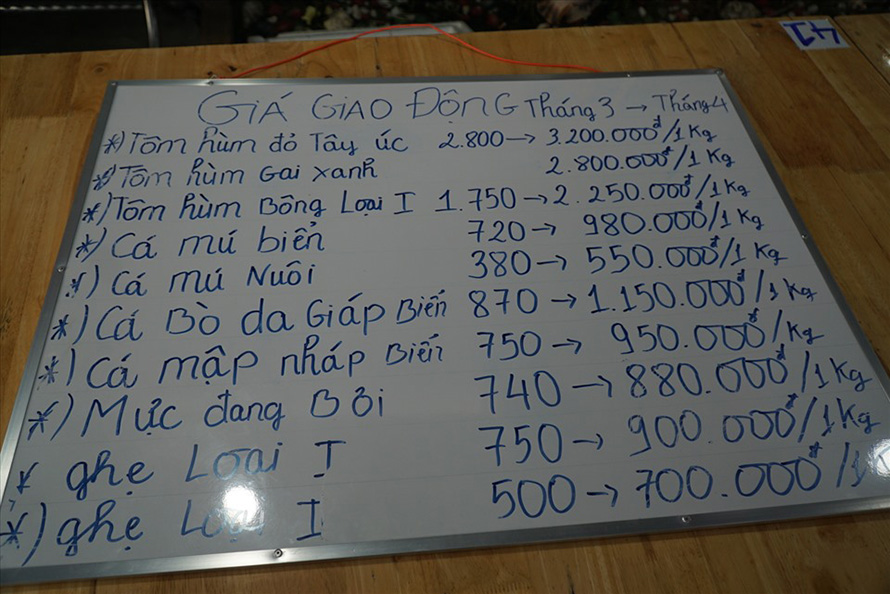 GIÁ GIAO ĐỘNG Tháng 3 → Tháng 4
*) Tôm hùm đỏ Tây úc 2.800 → 3.200.000đ/1 Kg
*) Tôm hùm Gai xanh 2.800.000đ/1 Kg
*) Tôm hùm Bông Loại I 1.750 → 2.250.000đ/1 Kg
*) Cá mú biển 720 → 980.000đ/1 Kg
*) Cá mú Nuôi 380 → 550.000đ/1 Kg
*) Cá Bò da Giáp Biển 870 → 1.150.000đ/1 Kg
*) Cá mập nháp Biển 750 → 950.000đ/Kg
*) Mực đang Bơi 740 → 880.000đ/1 Kg
* ghẹ Loại I 750 → 900.000đ/1 Kg
*) ghẹ Loại I 500 → 700.000đ/1